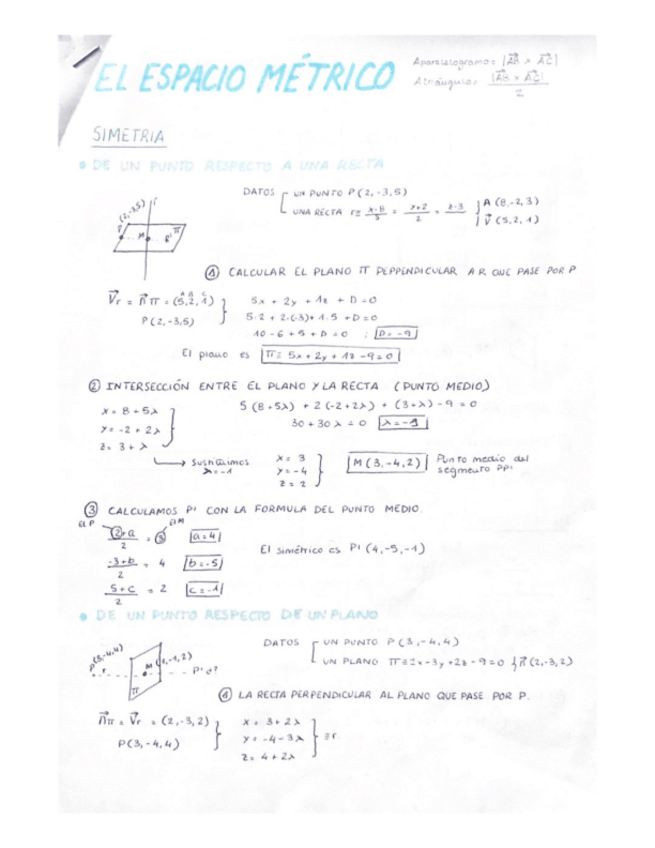 EL ESPACIO MÉTRICO
Aparalelogramo = |AB x AC|
Atriángulo = |AB x AC| / 2
SIMETRIA
• DE UN PUNTO RESPECTO A UNA RECTA
DATOS UN PUNTO P(2,-3,5)
UNA RECTA r≡ x-8/5 = y+2/2 = z-3 A(8,-2,3) V(5,2,1)
P(2,-3,5) r M P' π
① CALCULAR EL PLANO π PEPPENDICULAR A R QUE PASE POR P
Vr = nπ = (5,2,1) A B C
P(2,-3,5)
5x + 2y + 1z + D=0
5·2 + 2·(-3)+ 1·5 +D=0
10-6+5+D=0 ; D=-9
El plano es π≡ 5x+2y+1z-9=0
② INTERSECCIÓN ENTRE EL PLANO Y LA RECTA (PUNTO MEDIO)
x = 8+5λ
y = -2+2λ
z = 3+λ
5(8+5λ) + 2(-2+2λ) + (3+λ)-9=0
30+30λ=0 λ=-1
Sustituimos λ=-1
x = 3
y = -4
z = 2
M(3,-4,2) Punto medio del segmento PP'
③ CALCULAMOS P' CON LA FORMULA DEL PUNTO MEDIO.
EL P EL M
2+a/2 = 3 a=4
-3+b/2 = 4 b=-5
5+c/2 = 2 c=-1
El simétrico es P'(4,-5,-1)
• DE UN PUNTO RESPECTO DE UN PLANO
DATOS UN PUNTO P(3,-4,4)
UN PLANO π≡2x-3y+2z-9=0 n(2,-3,2)
P(3,-4,4) r M(1,-1,2) P'd? π
① LA RECTA PERPENDICULAR AL PLANO QUE PASE POR P.
nπ = Vr = (2,-3,2)
P(3,-4,4)
x = 3+2λ
y = -4-3λ
z = 4+2λ
≡r